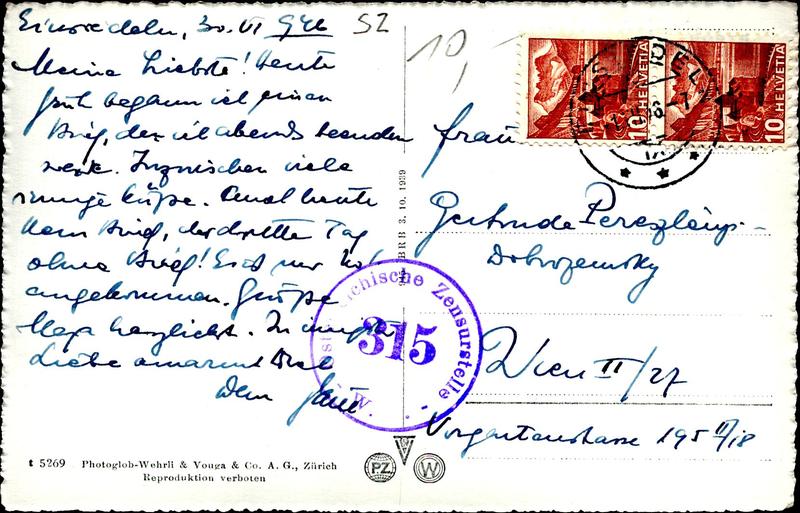 Einsiedeln, 30. VI 946 SZ
Meine Liebste! Heute
früh begann ich einen
Brief, den ich abends beenden
werde. Inzwischen viele
innige Küsse. Auch heute
kein Brief, der dritte Tag
ohne Brief! Es ist nur
angekommen. Grüße
herzlichst. In
Liebe umarmt Dich
Dein
10,
HELVETIA 10
HELVETIA 10
Frau
Gertrude
Dobrozemsky
Wien II/27
Vorgartenstrasse 195 II/18
BRB 3. 10. 1939
Zensurstelle
315
W.
t 5269 Photoglob-Wehrli & Vouga & Co. A. G., Zürich
Reproduktion verboten
PZ
W